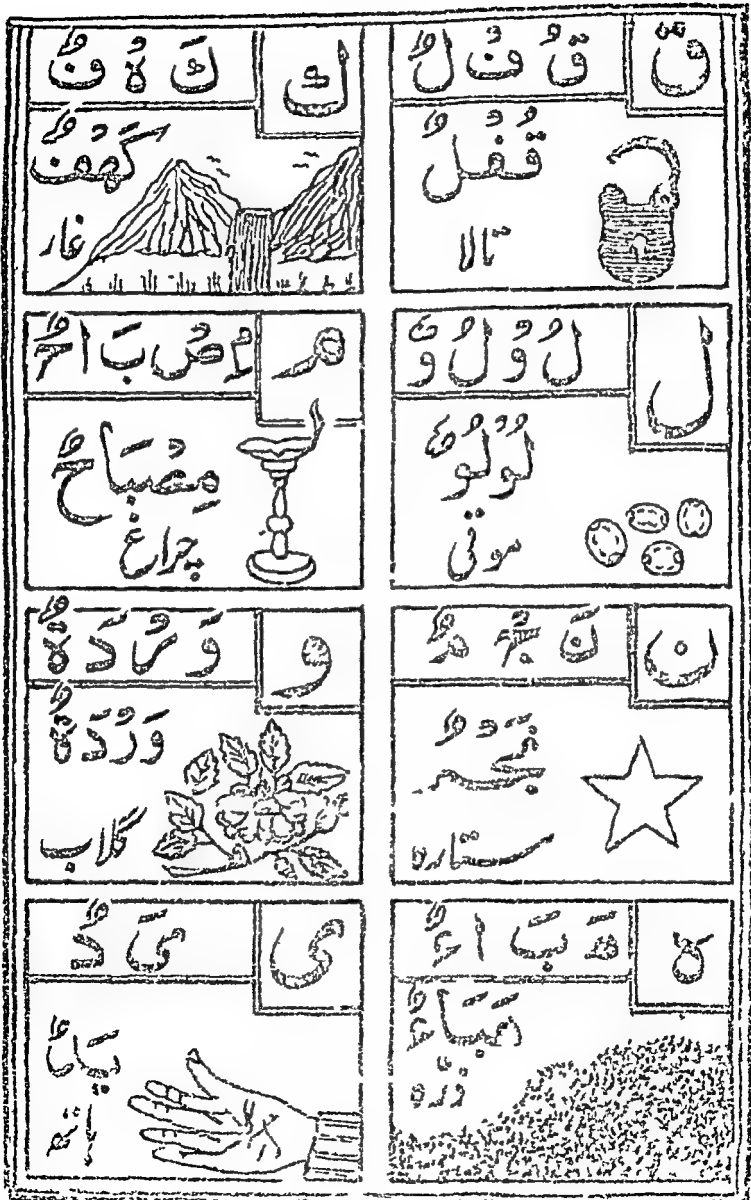 ق
قُ فْ لٌ
قُفْلٌ
تالا
ك
كَ هْ فٌ
كَهْفٌ
غار
ل
لُ وْ لُ وٌ
لُوْلُوٌ
موتی
م
مِ صْ بَ ا حٌ
مِصْبَاحٌ
چراغ
ن
نَ جْ مٌ
نَجْمٌ
ستارہ
و
وَ رْ دَ ةٌ
وَرْدَةٌ
گلاب
ه
هَ بَ ا ءٌ
هَبَاءٌ
ذرہ
ی
یَ دٌ